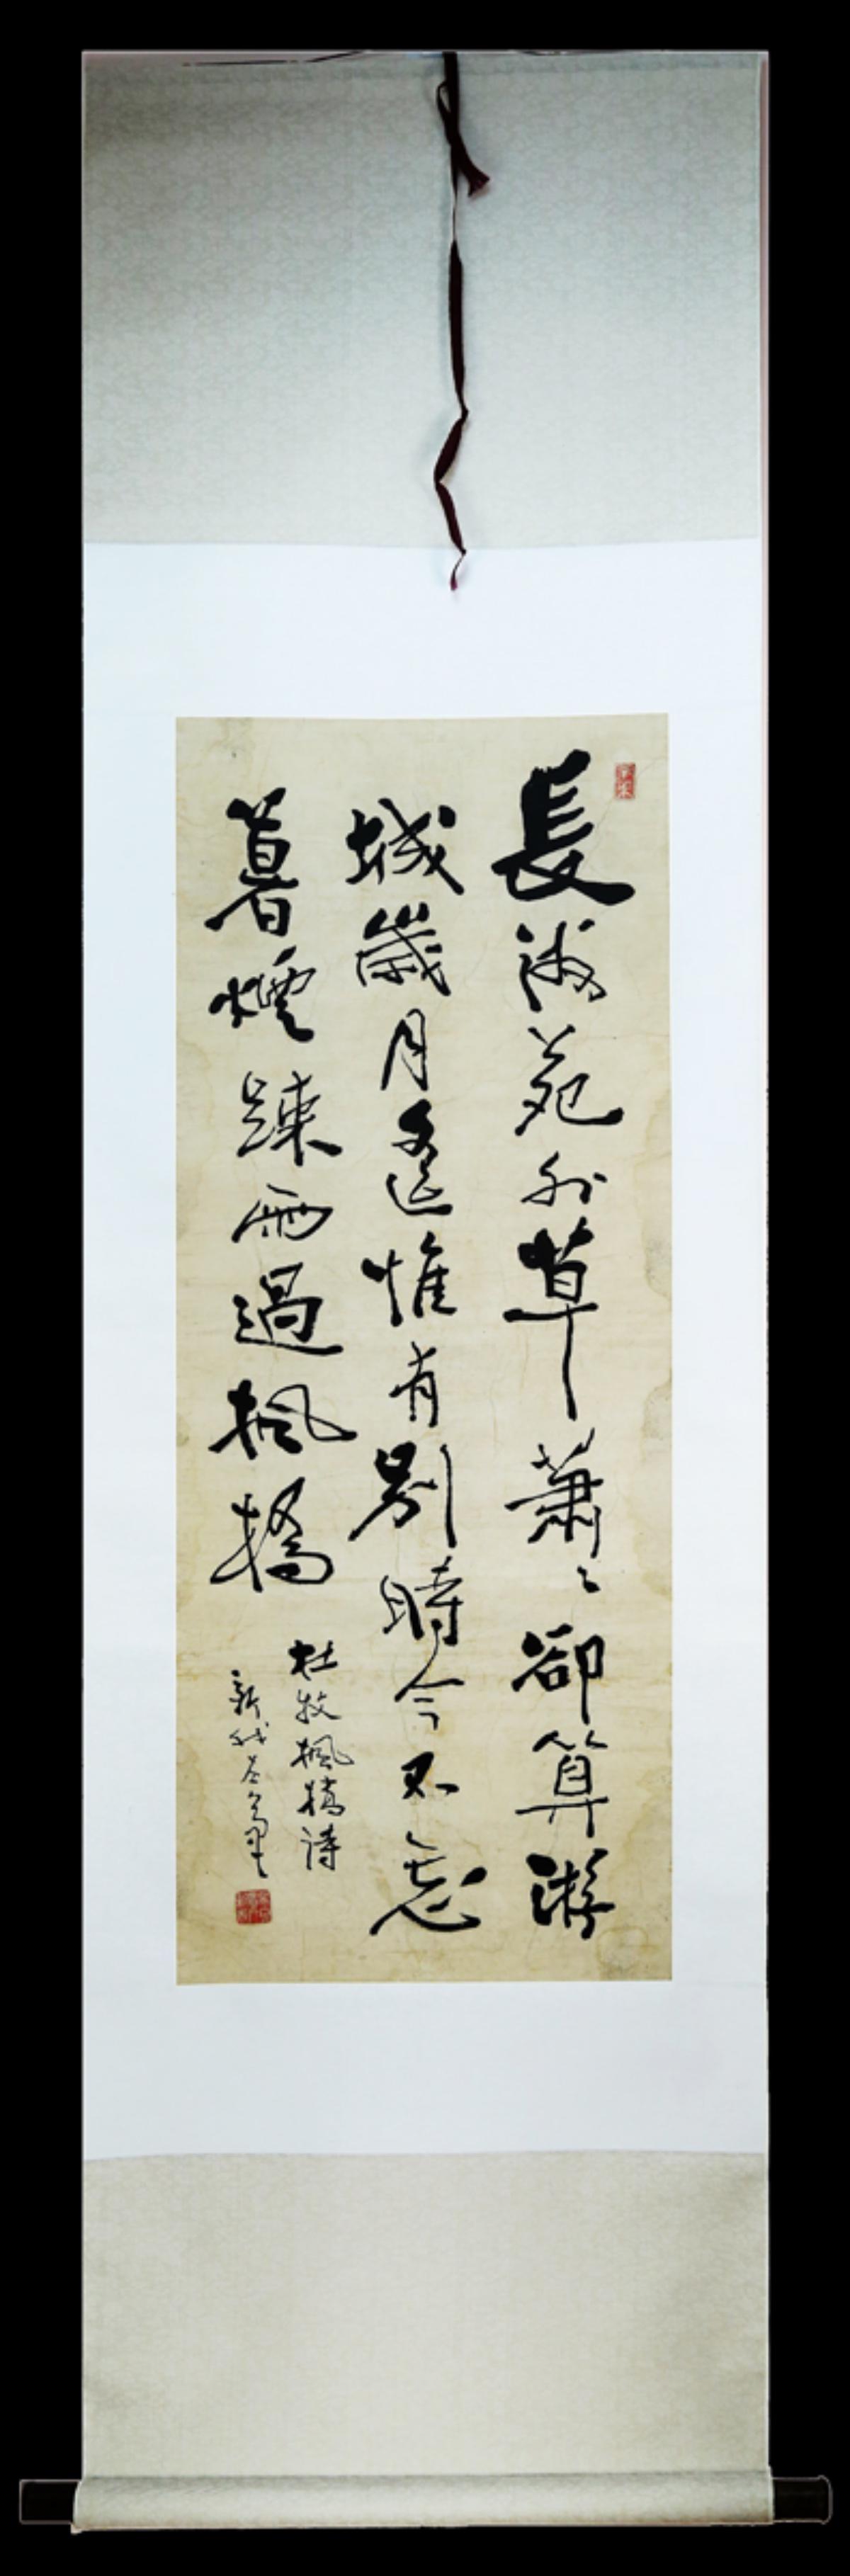 長洲苑外草蕭々卻算游
城歲月遙惟有別時今不忘
暮煙踈雨過楓橋
杜牧楓橋詩
新我左